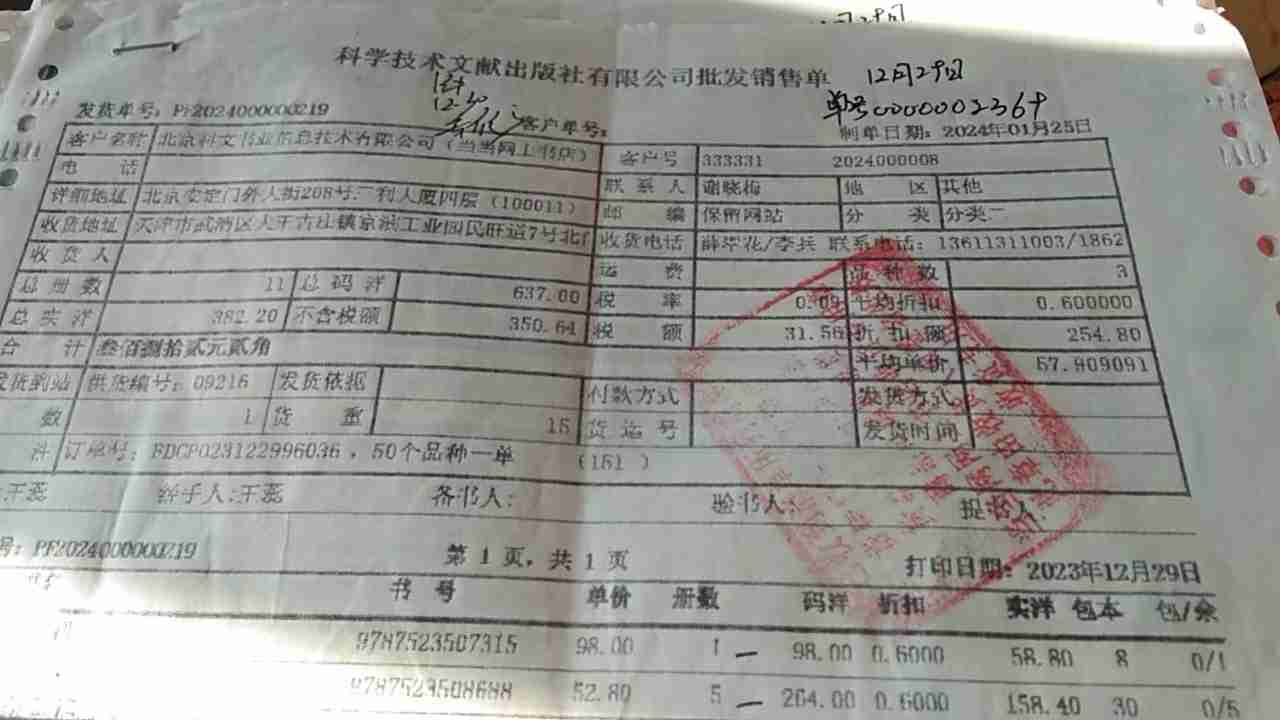 科学技术文献出版社有限公司批发销售单 12月29日
发货单号: PF2024000000219 客户单号: 制单日期: 2024年01月25日
客户名称 北京科文书业信息技术有限公司(当当网上书店) 客户号 333331 2024000008
电 话 联系人 谢晓梅 地 区 其他
详细地址 北京安定门外大街208号三利大厦四层(100011) 邮 编 保留网站 分 类 分类二
收货地址 天津市武清区大王古庄镇京滨工业园民旺道7号北 收货电话 薛翠花/李兵 联系电话: 13611311003/1862
收货人 运 费 品种数 3
总册数 11 总码洋 637.00 税 率 0.09 平均折扣 0.600000
总实洋 382.20 不含税额 350.64 税 额 31.56 折扣额 254.80
合 计 叁佰捌拾贰元贰角 平均单价 57.909091
发货到站 供货编号: 09216 发货依据 付款方式 发货方式
数 1 货 重 15 货运号 发货时间
订单号: EDCP023122996036 , 50个品种一单 (151 )
王蕊 经手人:王蕊 备书人: 验书人: 提书人
号: PF2024000000219 第 1 页, 共 1 页 打印日期: 2023年12月29日
书 号 单价 册数 码洋 折扣 实洋 包本 包/余
9787523507315 98.00 1 98.00 0.6000 58.80 8 0/1
9787523508688 52.80 5 264.00 0.6000 158.40 30 0/5